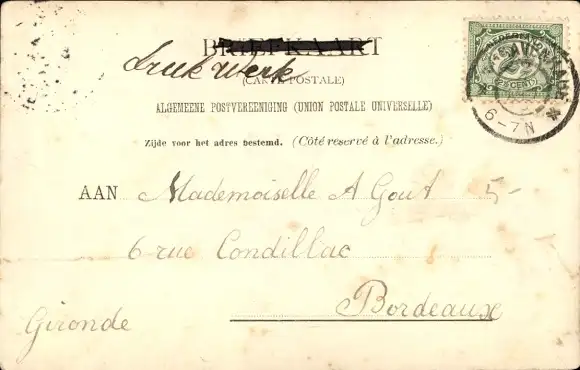 BRIEFKAART
druk werk
(CARTE POSTALE)
ALGEMEENE POSTVEREENIGING (UNION POSTALE UNIVERSELLE)
Zijde voor het adres bestemd. (Côté reservé à l'adresse.)
AAN Mademoiselle A Gout 5-
6 rue Condillac
Bordeaux
Gironde
NEDERLAND
2½ CENT
6-7N